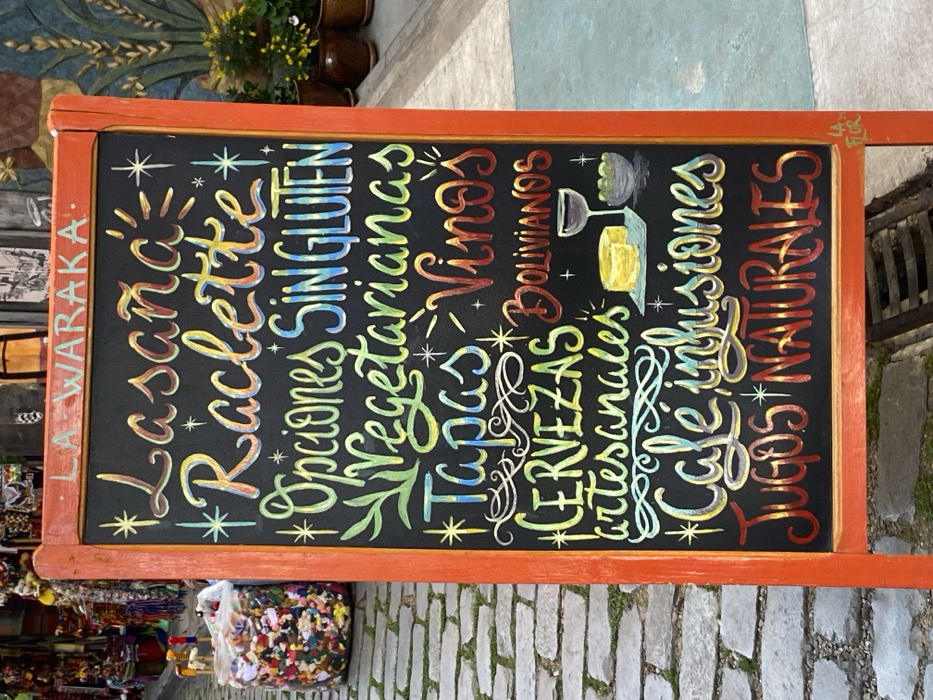 ·LA·WARAKA·
Lasaña
Raclette
Opciones SIN GLUTEN
Vegetarianas
Tapas Vinos
BOLIVIANOS
CERVEZAS
artesanales
Café infusiones
JUGOS NATURALES
LA
FLOR